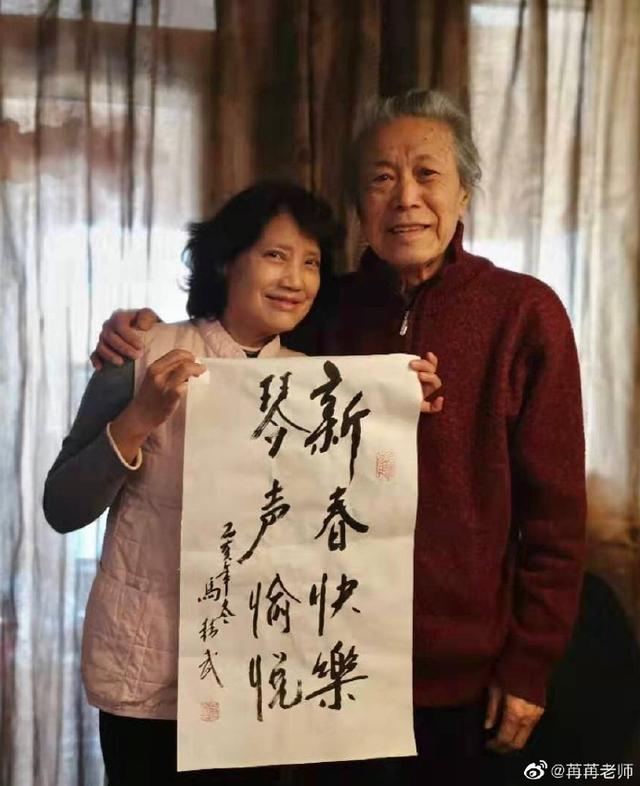 新春快樂
琴声愉悦
己亥年冬
馬 武
@苒苒老师